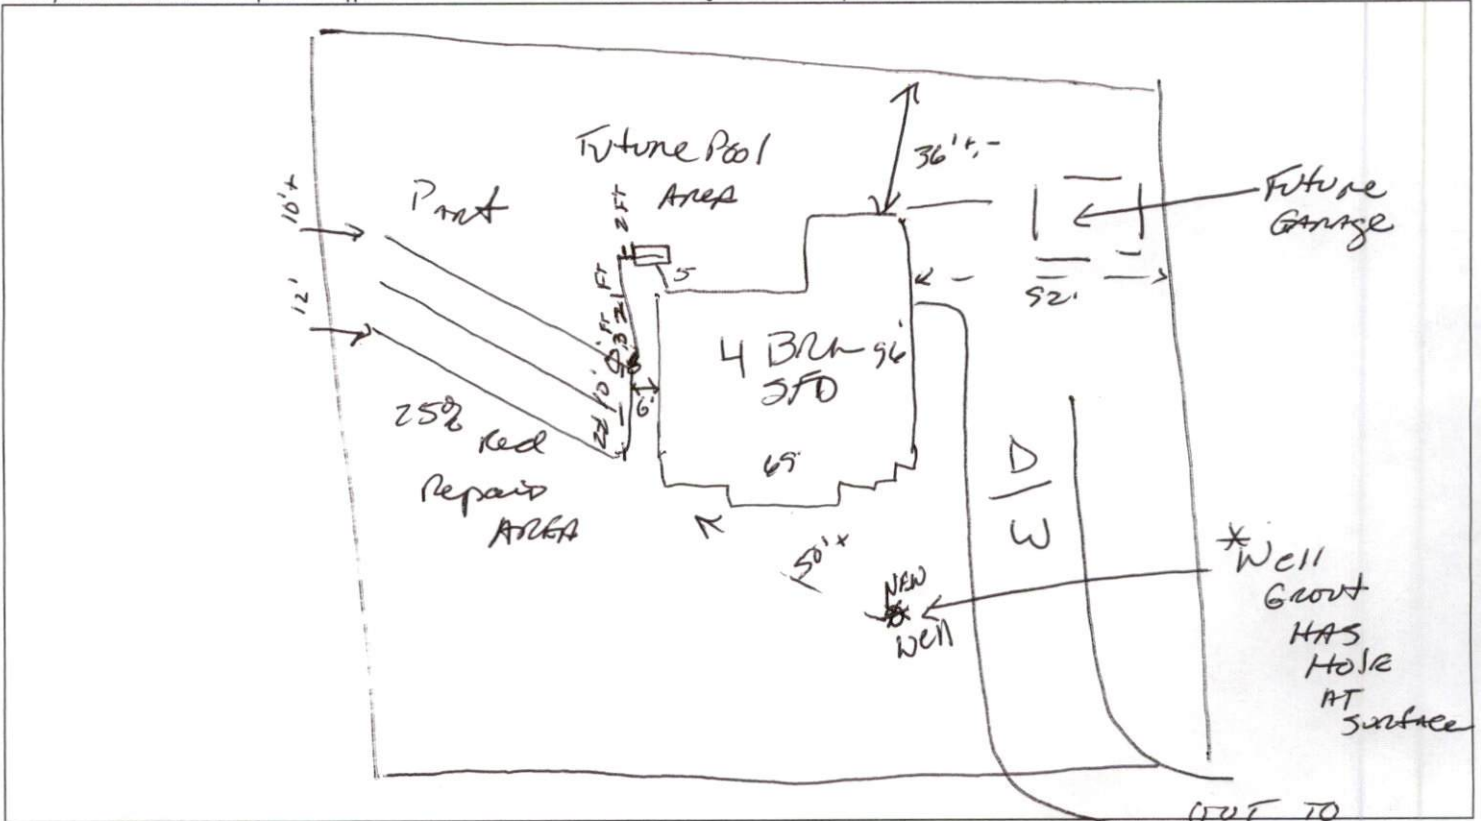 Future Pool
AREA
36'+,-
Future
GARAGE
10'+
Part
2 Ft
5
12'
92'
4 BRM
96'
SFD
6'
10'
25% Red
Repair
AREA
69'
D
W
50'+
NEW
Well
*Well
Grout
HAS
Hole
AT
Surface
OUT TO